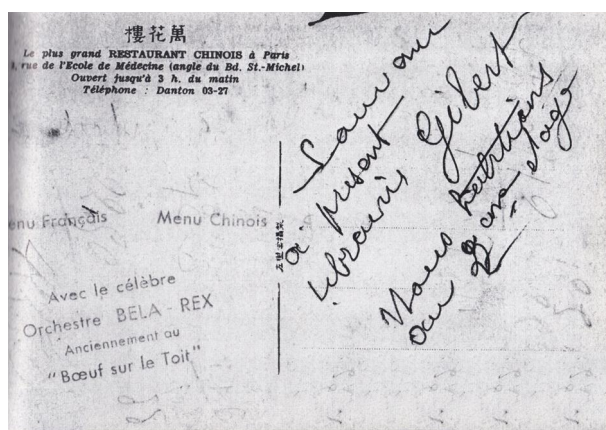 萬花樓
Le plus grand RESTAURANT CHINOIS à Paris
rue de l'Ecole de Médecine (angle du Bd. St.-Michel)
Ouvert jusqu'à 3 h. du matin
Téléphone : Danton 03-27
enu Français Menu Chinois
Avec le célèbre
Orchestre BELA - REX
Anciennement au
"Bœuf sur le Toit"
à présent
librairie Gibert
Nous habitions
au 2eme etage